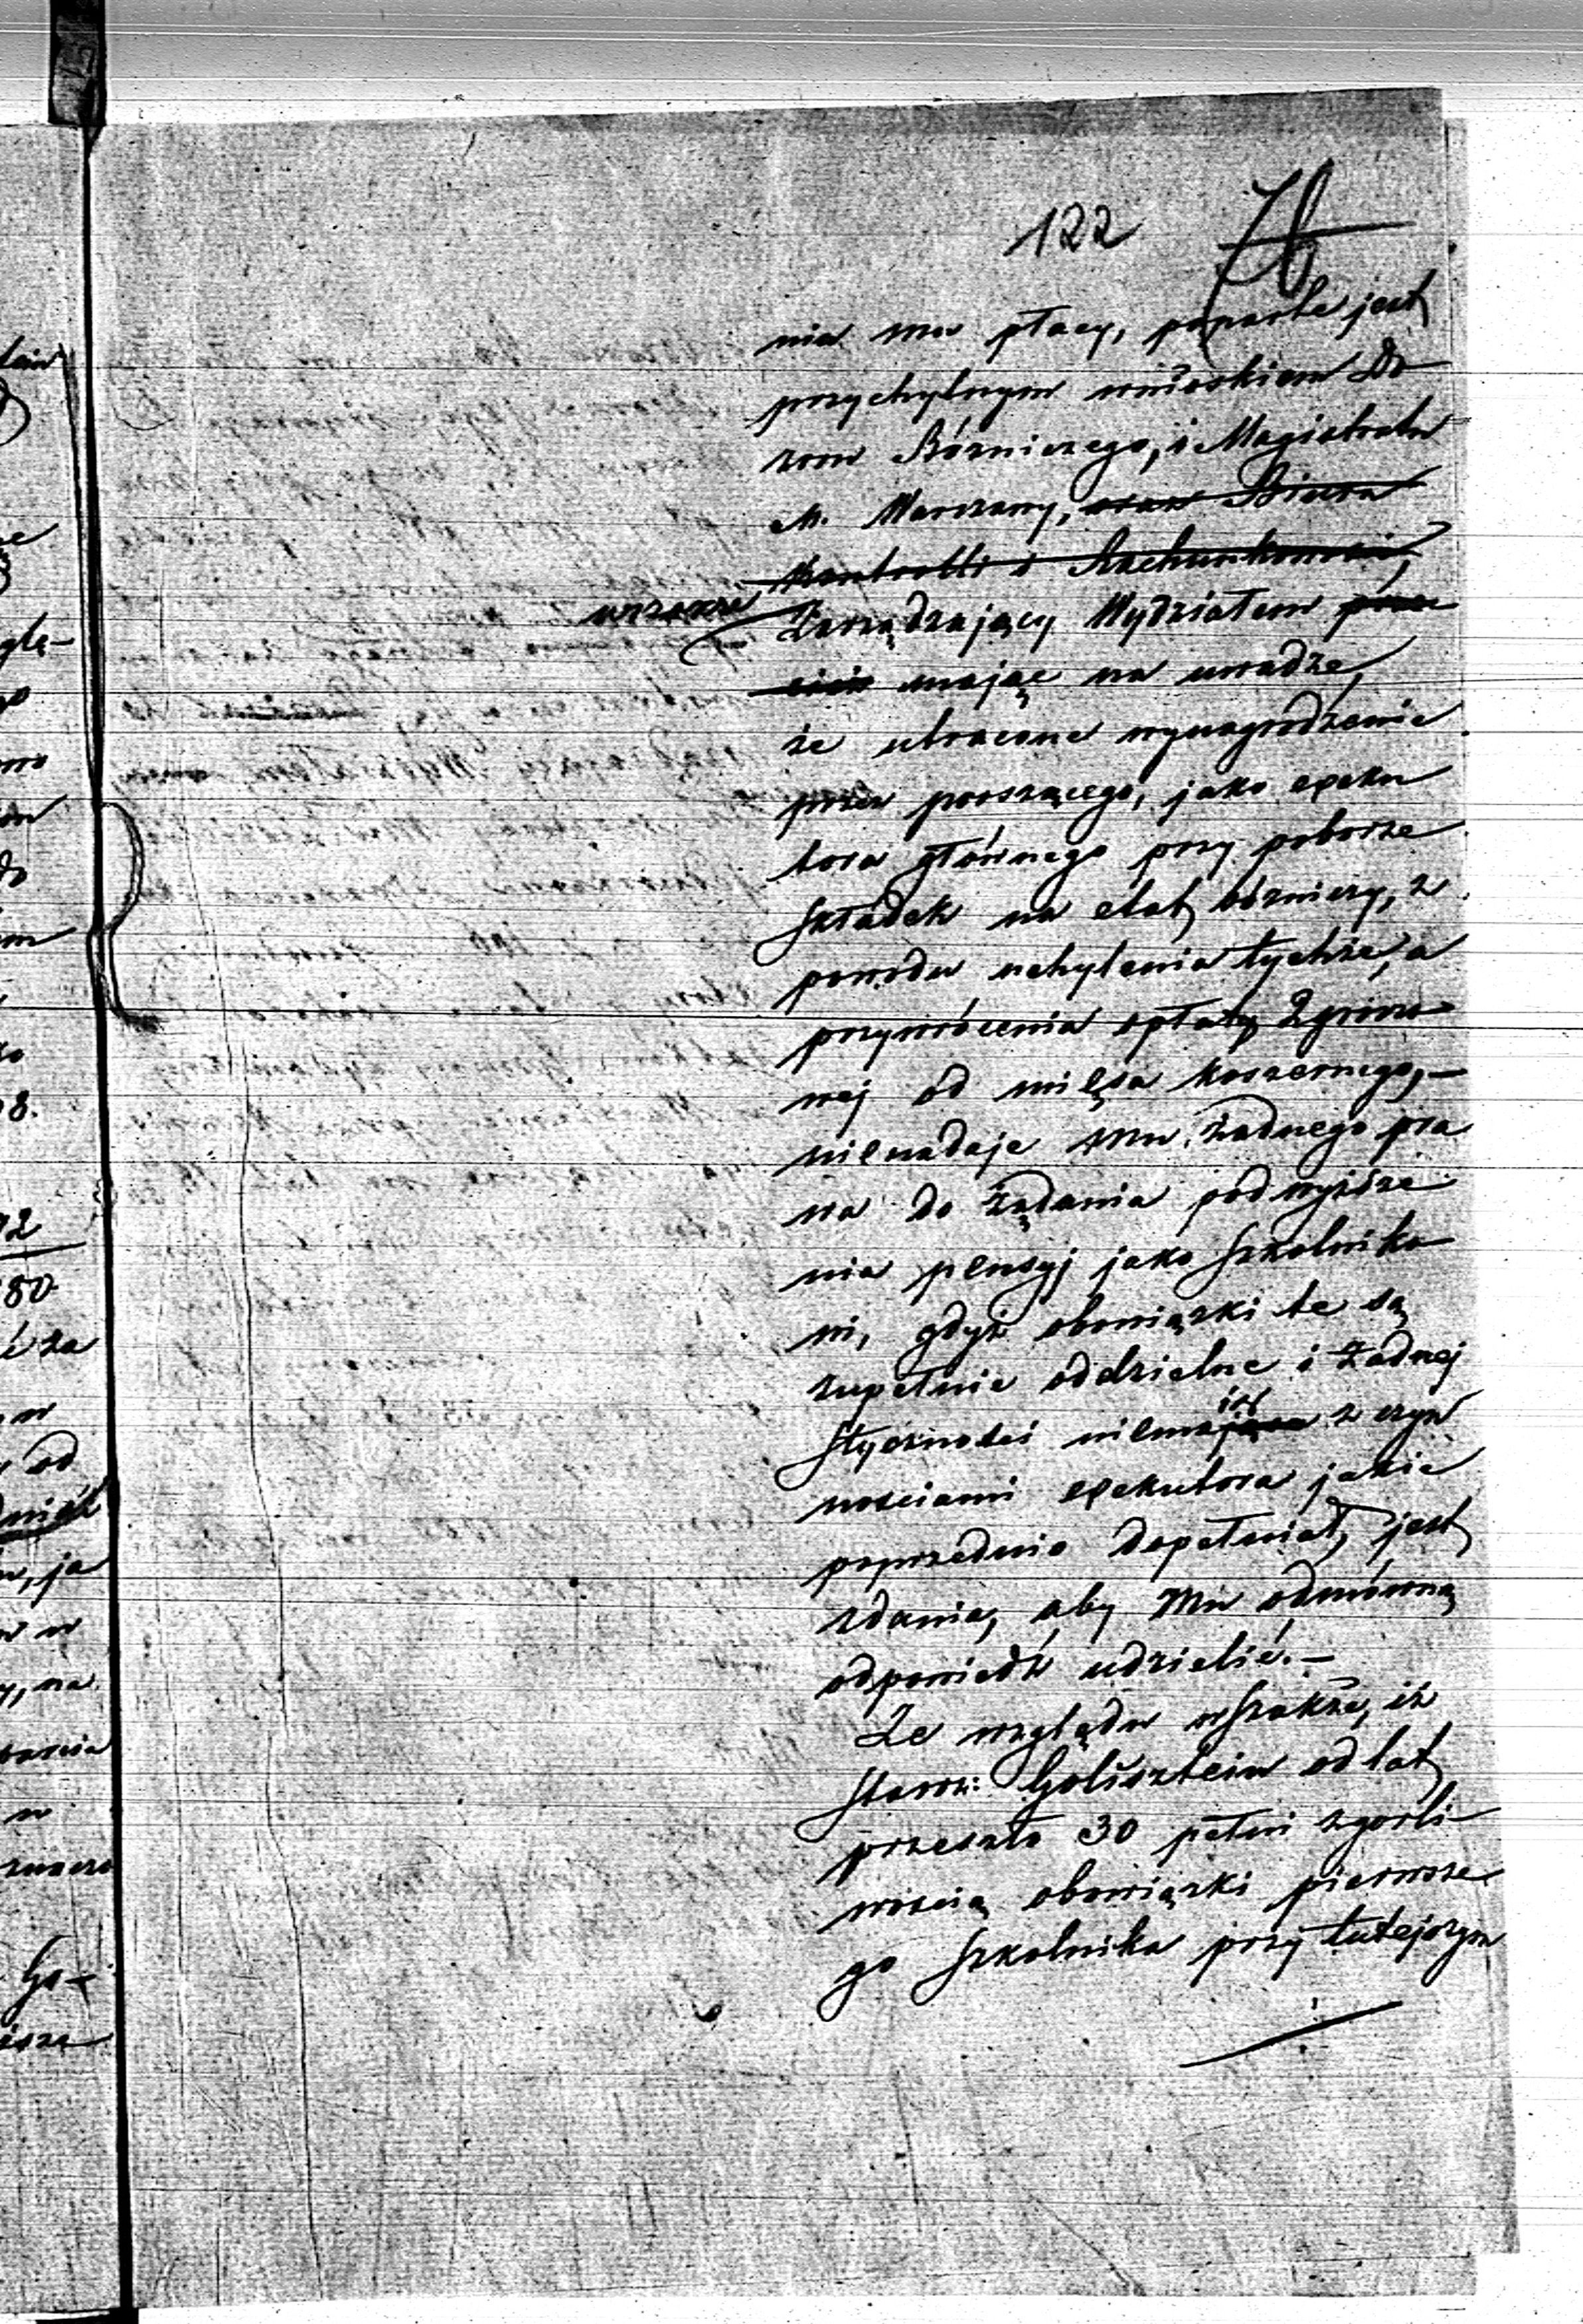 122 76
nia mu płacy, poparte jest
przychylnym wnioskiem Do
zoru Bóżniczego, i Magistratu
M. Warszawy, oraz Biura
Kontrolli i Rachunkowości,
wszakże Zarządzający Wydziałem
mając na uwadze,
że utracone wynagrodzenie
przez proszącego, jako exeku
tora głównego przy poborze
składek na etat bóżniczy, z
powodu uchylenia tychże, a
przywrócenia opłaty 2 groszo
wej od mięsa koszernego, —
nienadaje mu żadnego pra
wa do żądania podwyższe
nia pensyj jako szkolniko
wi, gdyż obowiązki te są
zupełnie oddzielne i żadnej
styczności niemają z czyn
nościami exekutora jakie
poprzednio dopełniał, jest
zdania, aby mu odmówną
odpowiedź udzielić. —
Ze względu wszakże, iż
Starz: Goldsztein od lat
przeszło 30 pełni z gorli
wością obowiązki pierwsze
go szkolnika przy tutejszym
tein
glę-
do
8.
72
80
ć za
od
, ja
, na
Go-